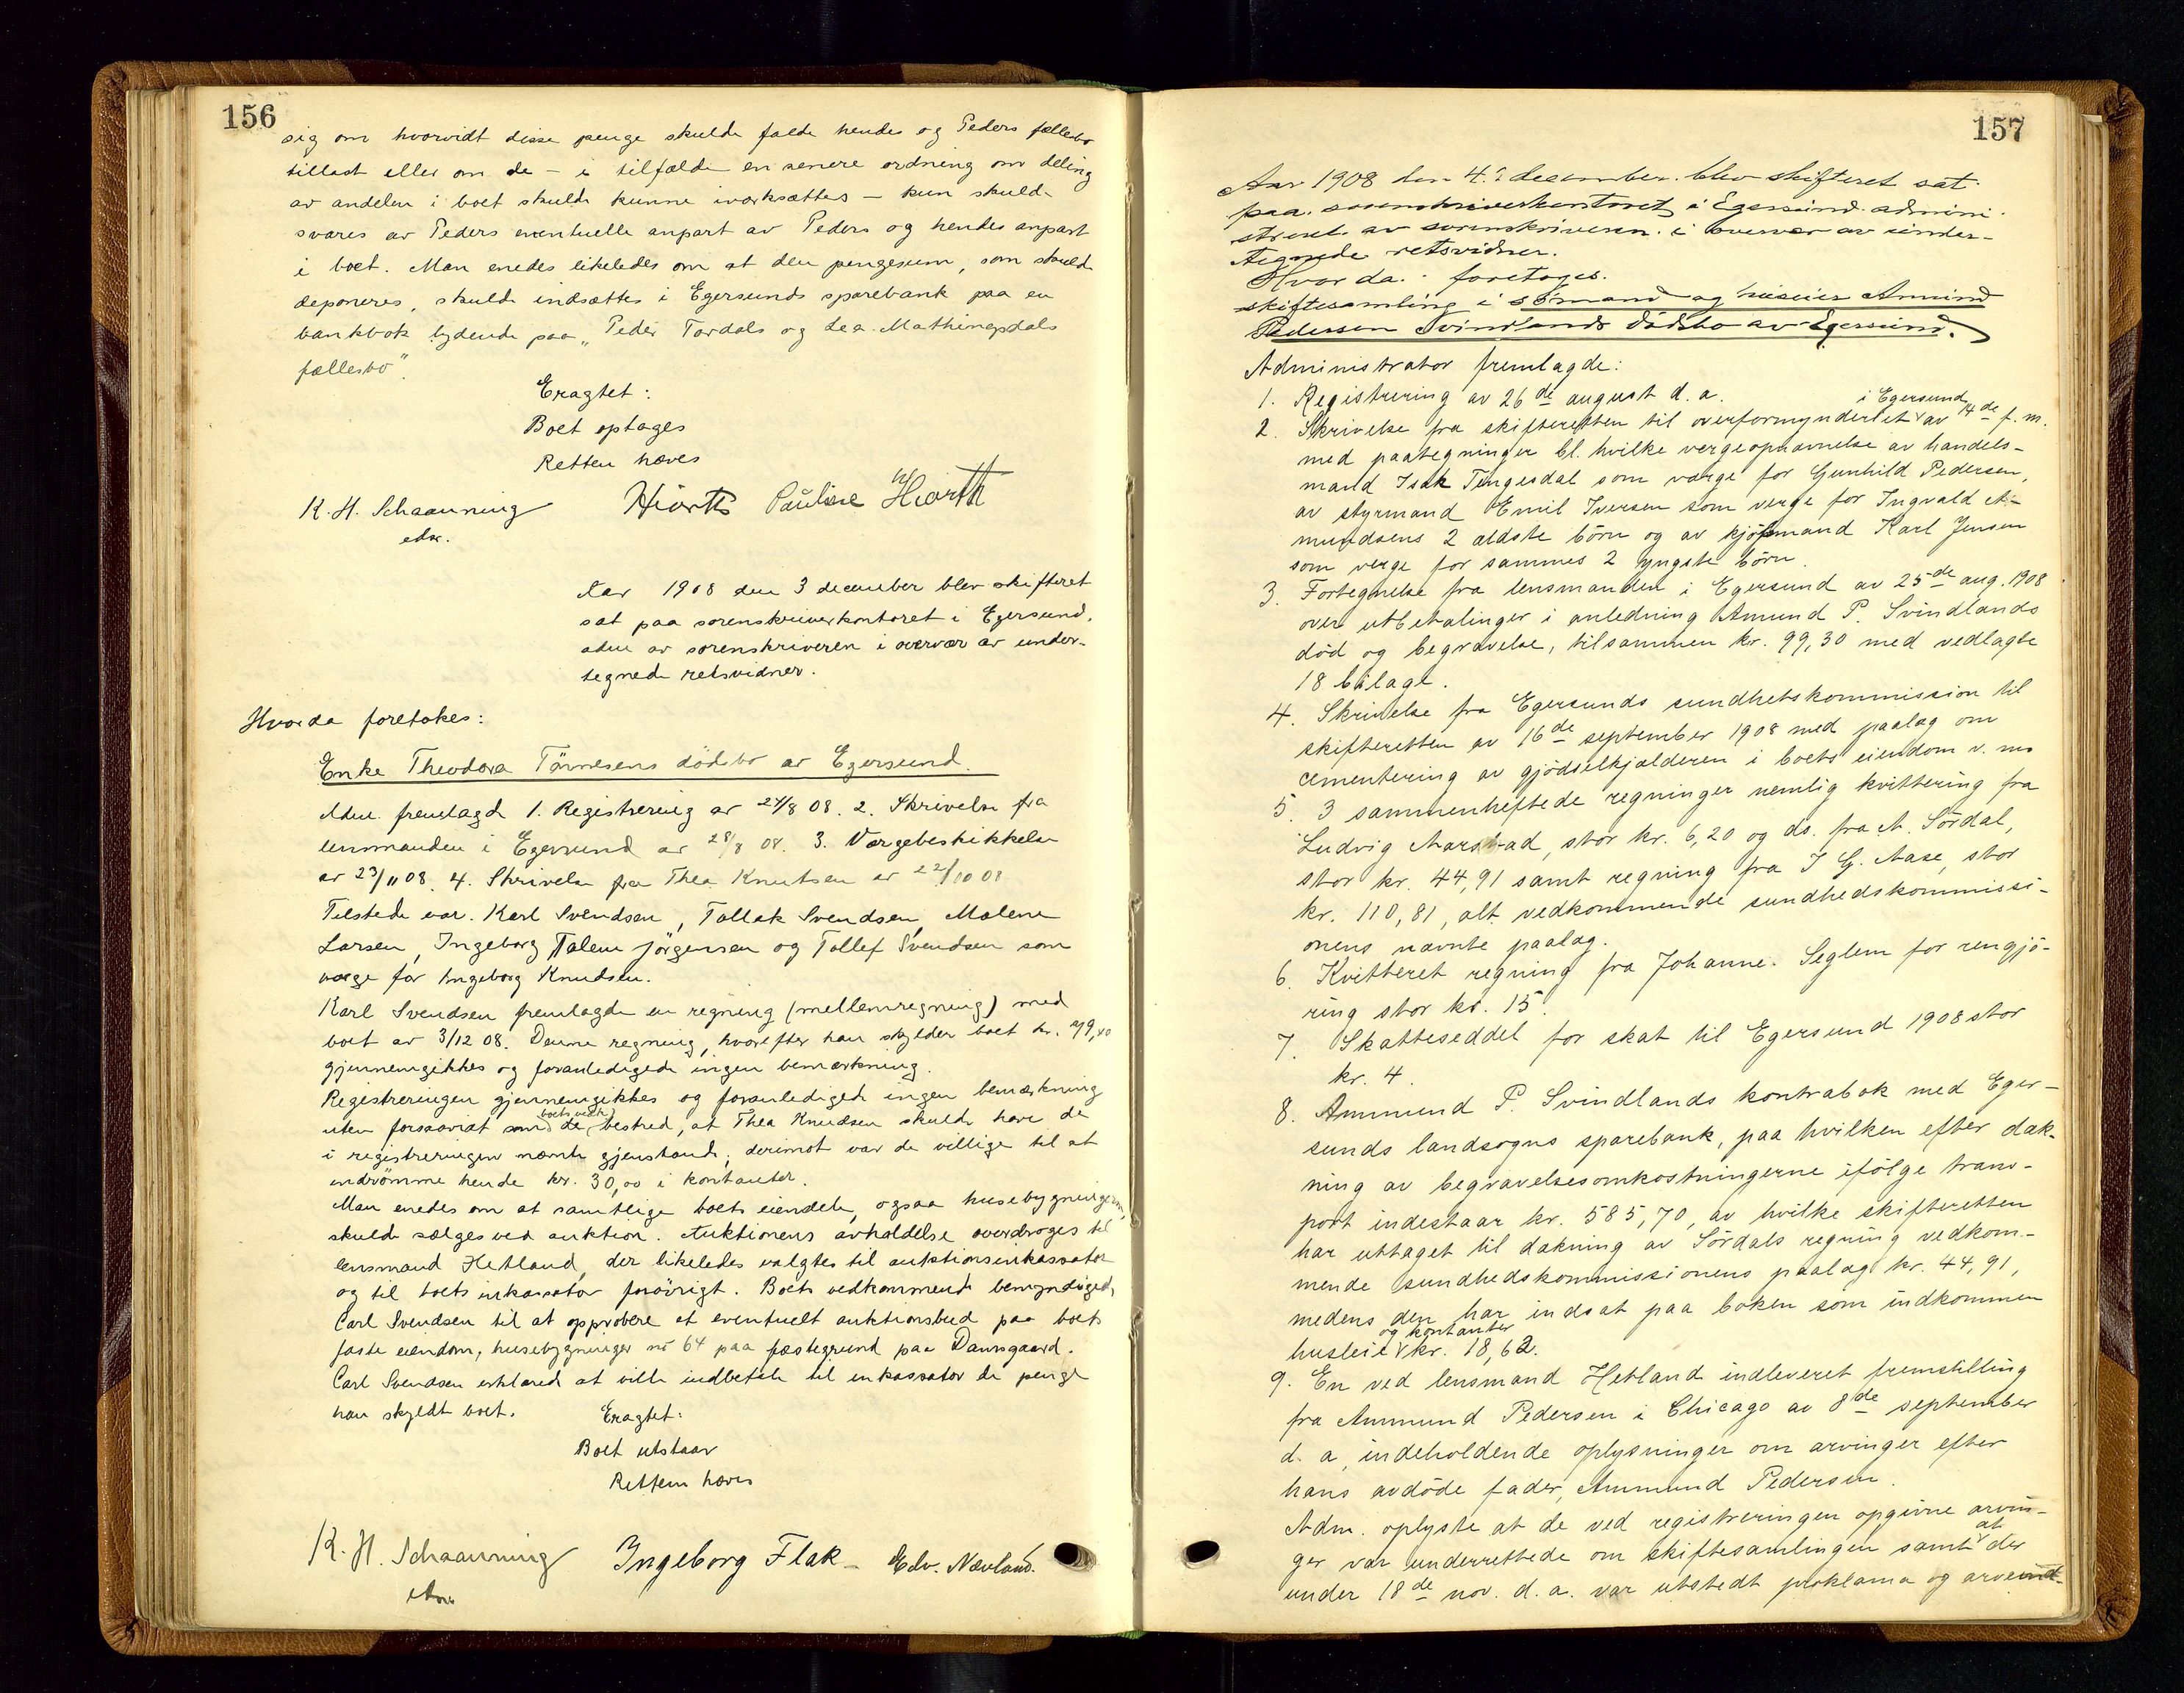 156
sig om hvorvidt disse penge skulde falde hendes og Peders fællesbo
tillast eller om de – i tilfælde en senere ordning om deling
av andelen i boet skulde kunne iværksættes – kun skulde
svares av Peders eventuelle anpart av Peders og hendes anpart
i boet. Man enedes likeledes om at den pengesum, som skulde
deponeres, skulde indsættes i Egersunds sparebank paa en
bankbok lydende paa „Peder Tordals og Lea Mathingsdals
fællesbo".
Eragtet:
Boet optages
Retten hæves
K. H. Schaanning Hiorth Pauline Hiorth
Aar 1908 den 3 december blev skifteret
sat paa sorenskriverkontoret i Egersund,
adm av sorenskriveren i overvær av under-
tegnede retsvidner.
Hvorda foretokes:
Enke Theodora Tönnesens dödsbo av Egersund.
Adm. fremlagde 1. Registrering av 24/8 08. 2. Skrivelse fra
lensmanden i Egersund av 28/8 08. 3. Værgebeskikkelse
av 23/11 08. 4. Skrivelse fra Thea Knutsen av 22/10 08
Tilstede var. Karl Svendsen, Tollak Svendsen, Malene
Larsen, Ingeborg Talene Jörgensen og Tollef Svendsen som
værge for Ingeborg Knudsen.
Karl Svendsen fremlagde en regning (mellemregning) med
boet av 3/12 08. Denne regning, hvorefter han skylder boet kr. 79,40
gjennemgikkes og foranledigede ingen bemærkning.
Registreringen gjennemgikkes og foranlediged ingen bemærkning
uten forsaavidt som de boets vedk. bestred, at Thea Knudsen skulde have de
i registreringen nævnte gjenstande; derimot var de villige til at
indrömme hende kr. 30,00 i kontanter.
Man enedes om at samtlige boets eiendele, ogsaa husebygningerne,
skulde sælges ved auktion. Auktionens avholdelse overdroges til
lensmand Hetland, der likeledes valgtes til auktionsinkassator
og til boets inkassator forövrigt. Boets vedkommende bemyndiged,
Carl Svendsen til at approbere et eventuelt auktionsbud paa boets
faste eiendom, husebygninger no 64 paa fæstegrund paa Damsgaard.
Carl Svendsen erklæred at ville indbetale til inkassator de penge
han skyldt boet.
Eragtet:
Boet utstaar
Retten hæves
K. H. Schaanning Ingeborg Flak Edv. Nævland.
157
Aar 1908 den 4.de december blev skifteret sat
paa sorenskriverkontoret i Egersund admini-
streret av sorenskriveren i overvær av under-
tegnede retsvidner.
Hvorda foretoges.
skiftesamling i sömand og huseier Amund
Pedersen Svindlands dödsbo av Egersund.
Administrator fremlagde:
1. Registrering av 26de august d. a.
2. Skrivelse fra skifteretten til overformynderiet i Egersund av 14de f. m.
med paategninger bl. hvilke vergeopnævnelse av handels-
mand Isak Tengesdal som værge for Gunhild Pedersen,
av styrmand Emil Iversen som verge for Ingvald A-
mundsens 2 ældste börn og av kjöpmand Karl Jensen
som verge for sammes 2 yngste börn.
3. Fortegnelse fra lensmanden i Egersund av 25de aug. 1908
over utbetalinger i anledning Amund P. Svindlands
död og begravelse, tilsammen kr. 99,30 med vedlagte
18 bilage.
4. Skrivelse fra Egersunds sundhetskommission til
skifteretten av 16de september 1908 med paalæg om
cementering av gjödselkjælderen i boets eiendom v. m.
5. 3 sammenheftede regninger nemlig kvittering fra
Ludvig Aarstad, stor kr. 6,20 og ds. fra A. Sördal,
stor kr. 44,91 samt regning fra I G. Aase, stor
kr. 110,81, alt vedkommende sundhedskommissi-
onens nævnte paalæg.
6. Kvitteret regning fra Johanne Seglem for rengjö-
ring stor kr. 15.
7. Skatteseddel for skat til Egersund 1908 stor
kr. 4.
8. Ammund P. Svindlands kontrabok med Eger-
sunds landsogns sparebank, paa hvilken efter dæk-
ning av begravelsesomkostningerne ifölge trans-
port indestaar kr. 585,70, av hvilke skifteretten
har uttaget til dækning av Sördals regning vedkom-
mende sundhedskommissionens paalæg kr. 44,91,
medens den har indsat paa boken som indkommen
husleie og kontanter kr. 18,62.
9. En ved lensmand Hetland indleveret fremstilling
fra Ammund Pedersen i Chicago av 8de september
d. a, indeholdende oplysninger om arvinger efter
hans avdöde fader, Ammund Pedersen.
Adm. oplyste at de ved registreringen opgivne arvin-
ger var underrettede om skiftesamlingen samt at der
under 18de nov. d. a. var utstedt proklama og arveind-